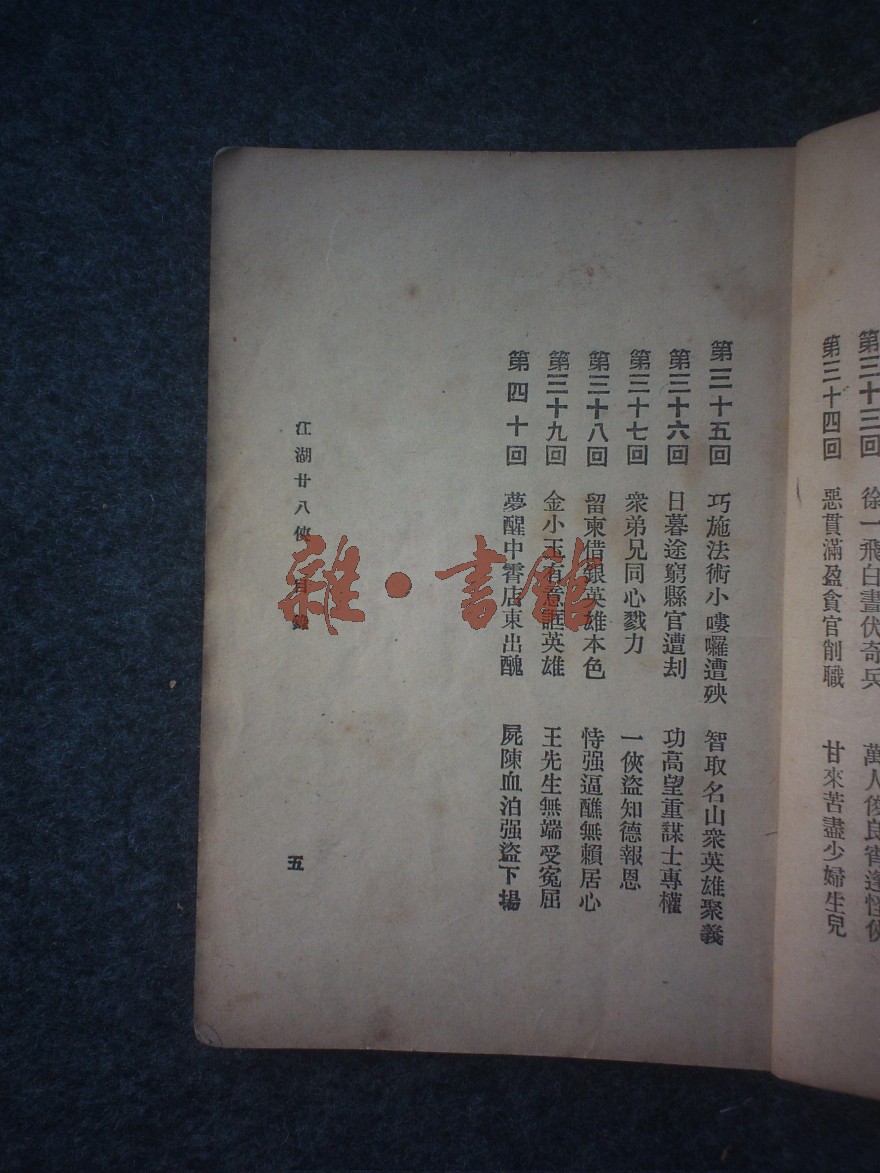 第三十三回 徐一飛白晝伏奇兵 萬人俊良宵逢怪俠
第三十四回 惡貫滿盈貪官削職 甘來苦盡少婦生兒
第三十五回 巧施法術小嘍囉遭殃 智取名山衆英雄聚義
第三十六回 日暮途窮縣官遭刦 功高望重謀士專權
第三十七回 衆弟兄同心戮力 一俠盜知德報恩
第三十八回 留柬借銀英雄本色 恃强逼醮無賴居心
第三十九回 金小玉有意誆英雄 王先生無端受寃屈
第四十回 夢醒中霄店東出醜 屍陳血泊强盜下塲
江湖廿八俠 目錄
五
雜·書館